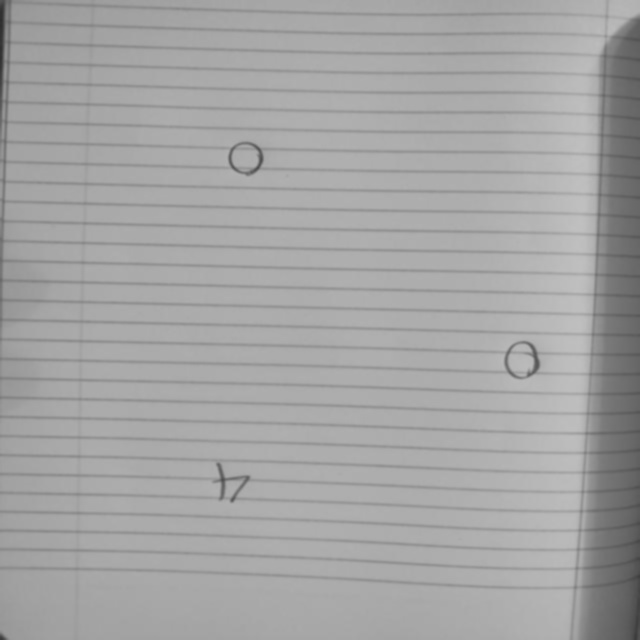 0
0
4